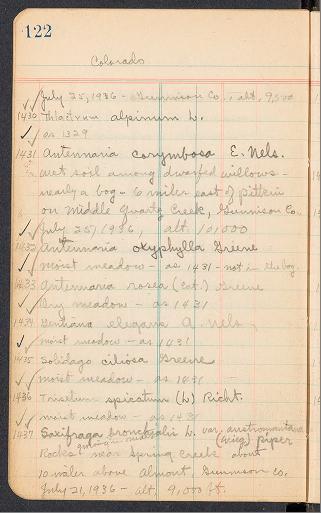 122
Colorado
July 25, 1936 - Gunnison Co., alt. 9,500
1430 Thlalictrum alpinum L.
as 1329
1431 Antennaria corymbosa E. Nels.
wet soil among dwarfed willows -
nearly a bog - 6 miles east of Pitkin
on Middle Quartz Creek, Gunnison Co.
July 25, 1936, alt. 10,000
1432 Antennaria oxyphylla Greene
moist meadow - as 1431 - not in the bog
1433 Antennaria rosea (Eat.) Greene
Dry meadow - as 1431
1434 Gentiana elegans A. Nels.
moist meadow - as 1431
1435 Solidago ciliosa Greene
moist meadow - as 1431
1436 Trisetum spicatum (L) Richt.
moist meadow - as 1431
1437 Saxifraga bronchialis L. var. austromontana
(Wieg) Piper
Rocks near Spring Creek about
10 miles above Almont, Gunnison Co.
July 21, 1936 - alt. 9,000 ft.